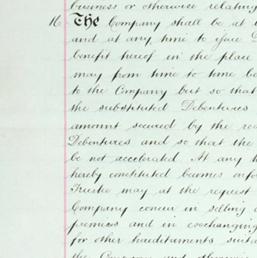 business or otherwise relating
16 The Company shall be at
and at any time to
benefit hereof in the place
may from time to time be
to the Company but so that
the substituted Debentures
amount secured by the
Debentures and so that the
be not accelerated. At any
hereby constituted becomes
Trustee may at the request
Company concur in selling
premises and in exchanging
for other hereditaments
the Company and